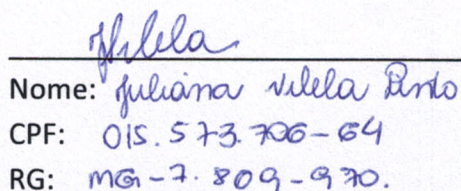 Vilela
Nome: Juliana Vilela Pinto
CPF: 015.573.706-64
RG: MG-7.809-970.